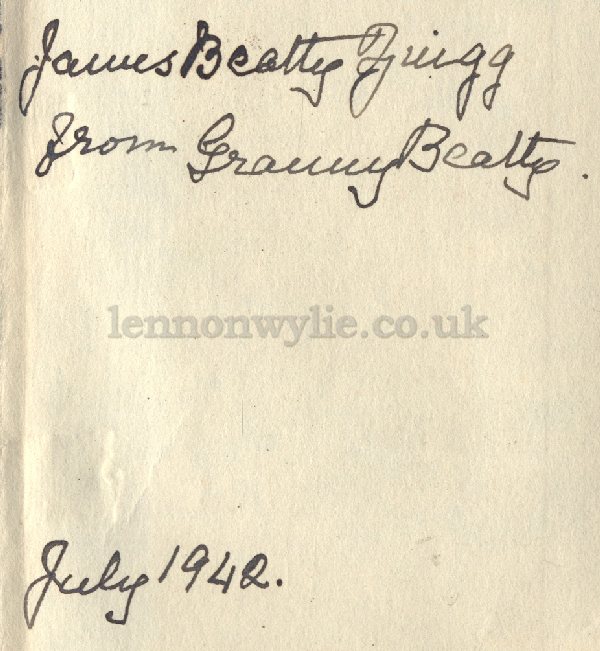 James Beatty
from Granny Beatty.
lennonwylie.co.uk
July 1942.